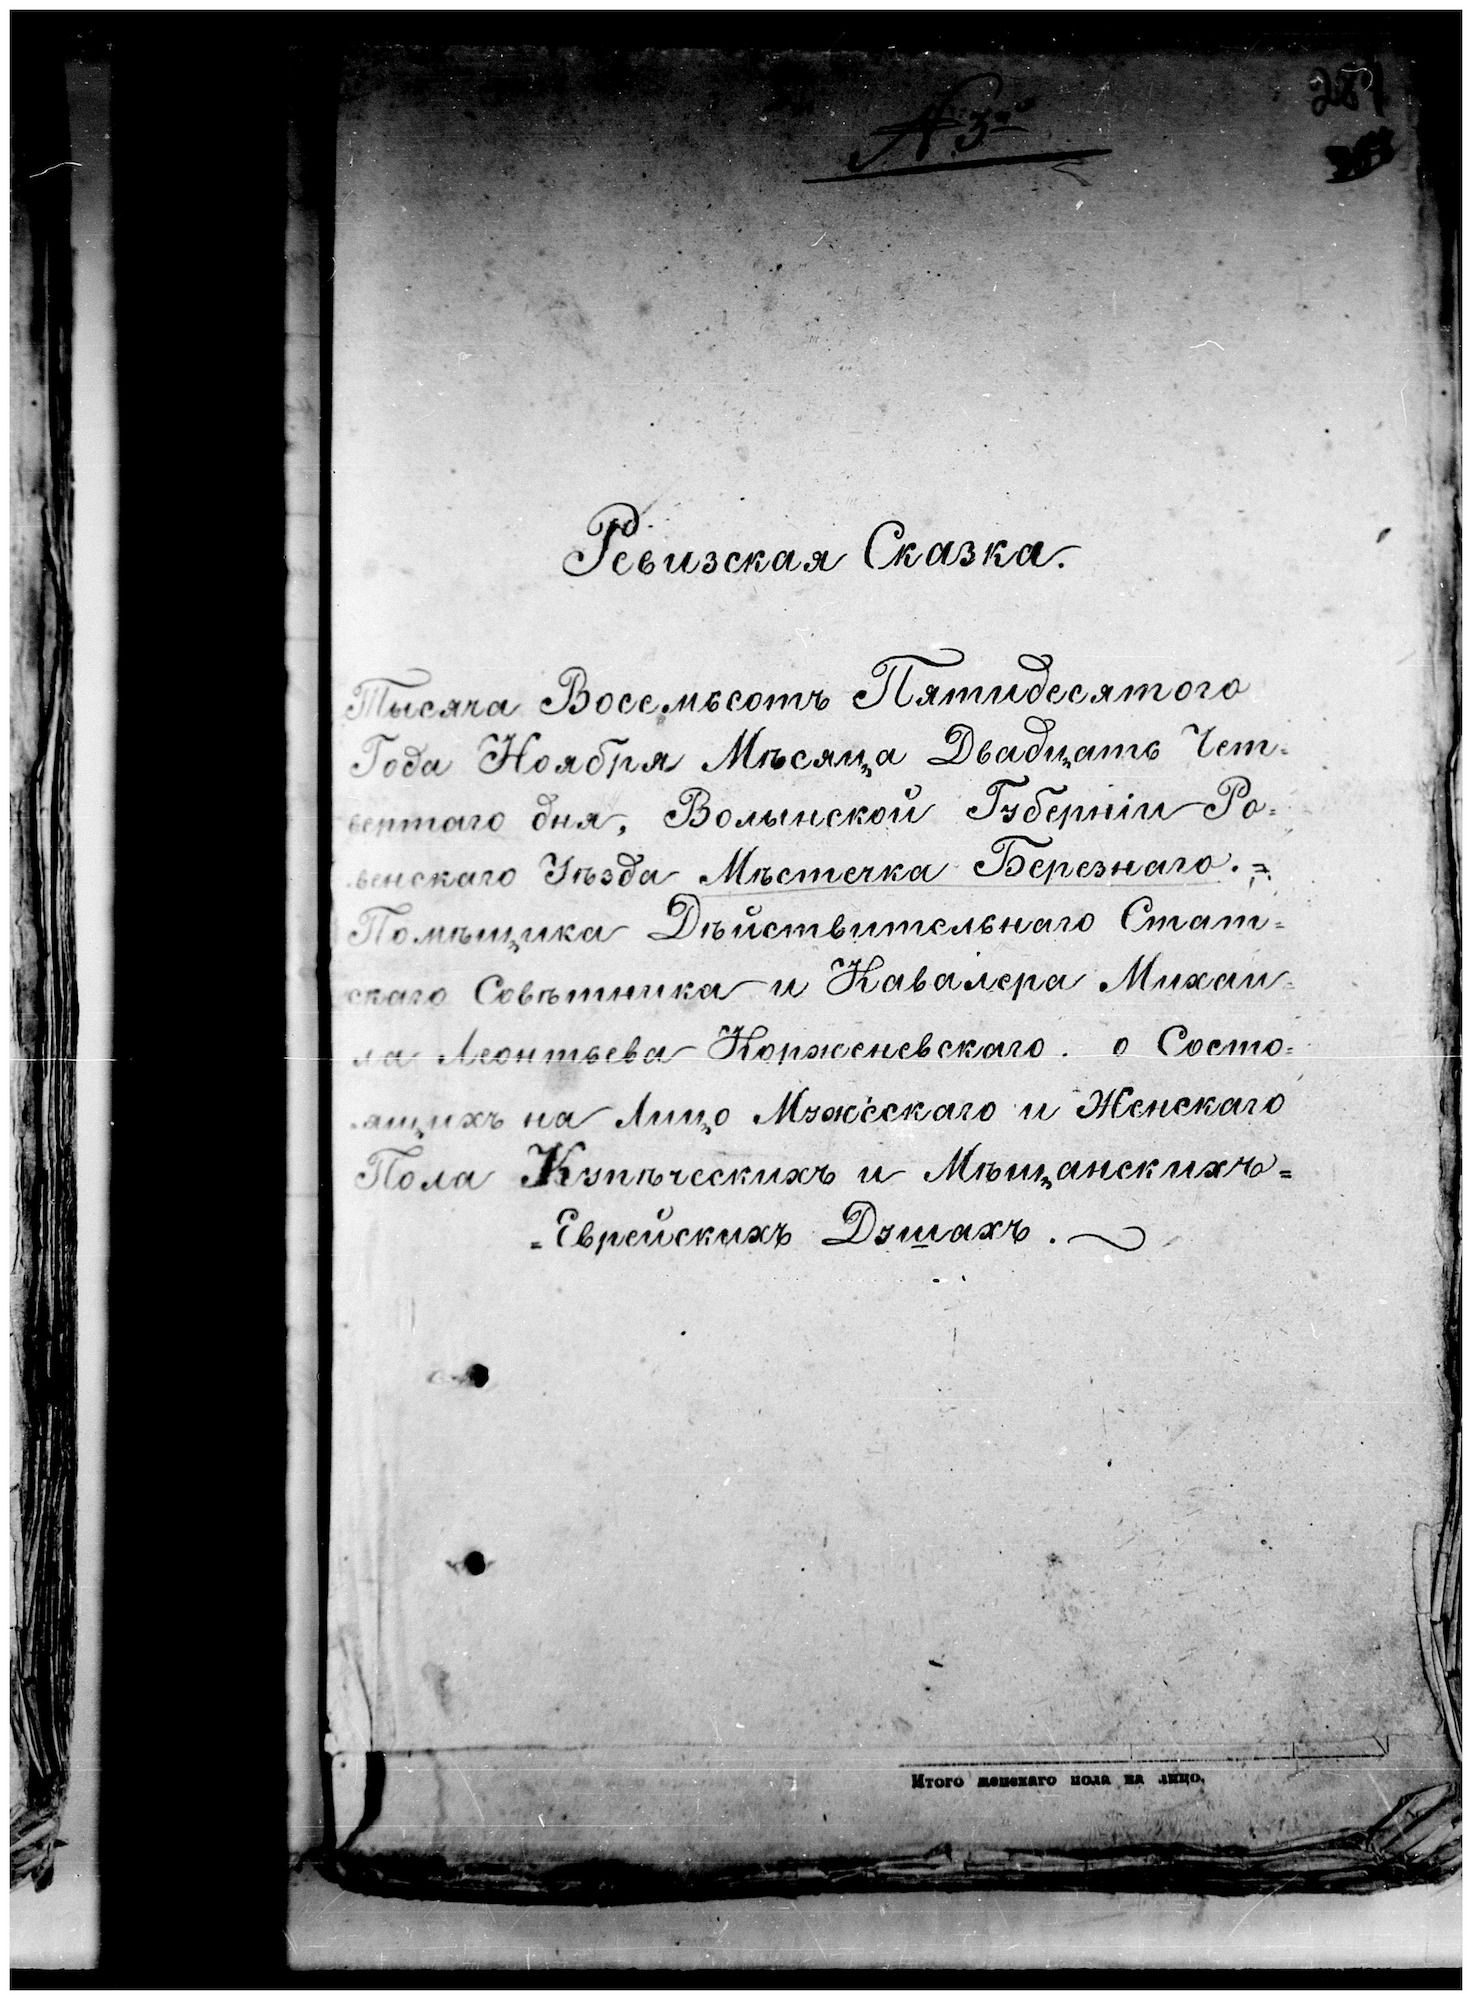 287
№ 3й
Ревизская Сказка.
Тысяча Восемьсотъ Пятидесятого
Года Ноября Мѣсяца Двадцать Чет=
вертаго дня, Волынской Губерніи Ро=
венскаго Уѣзда Мѣстечка Березнаго. =
Помѣщика Дѣйствительнаго Стат=
скаго Совѣтника и Кавалера Михаи=
ла Леонтьева Корженевскаго. о Состо=
ящихъ на Лицо Мужескаго и Женскаго
Пола Купѣческихъ и Мѣщанскихъ=
=Еврейскихъ Душахъ.
Итого женскаго пола на лицо.